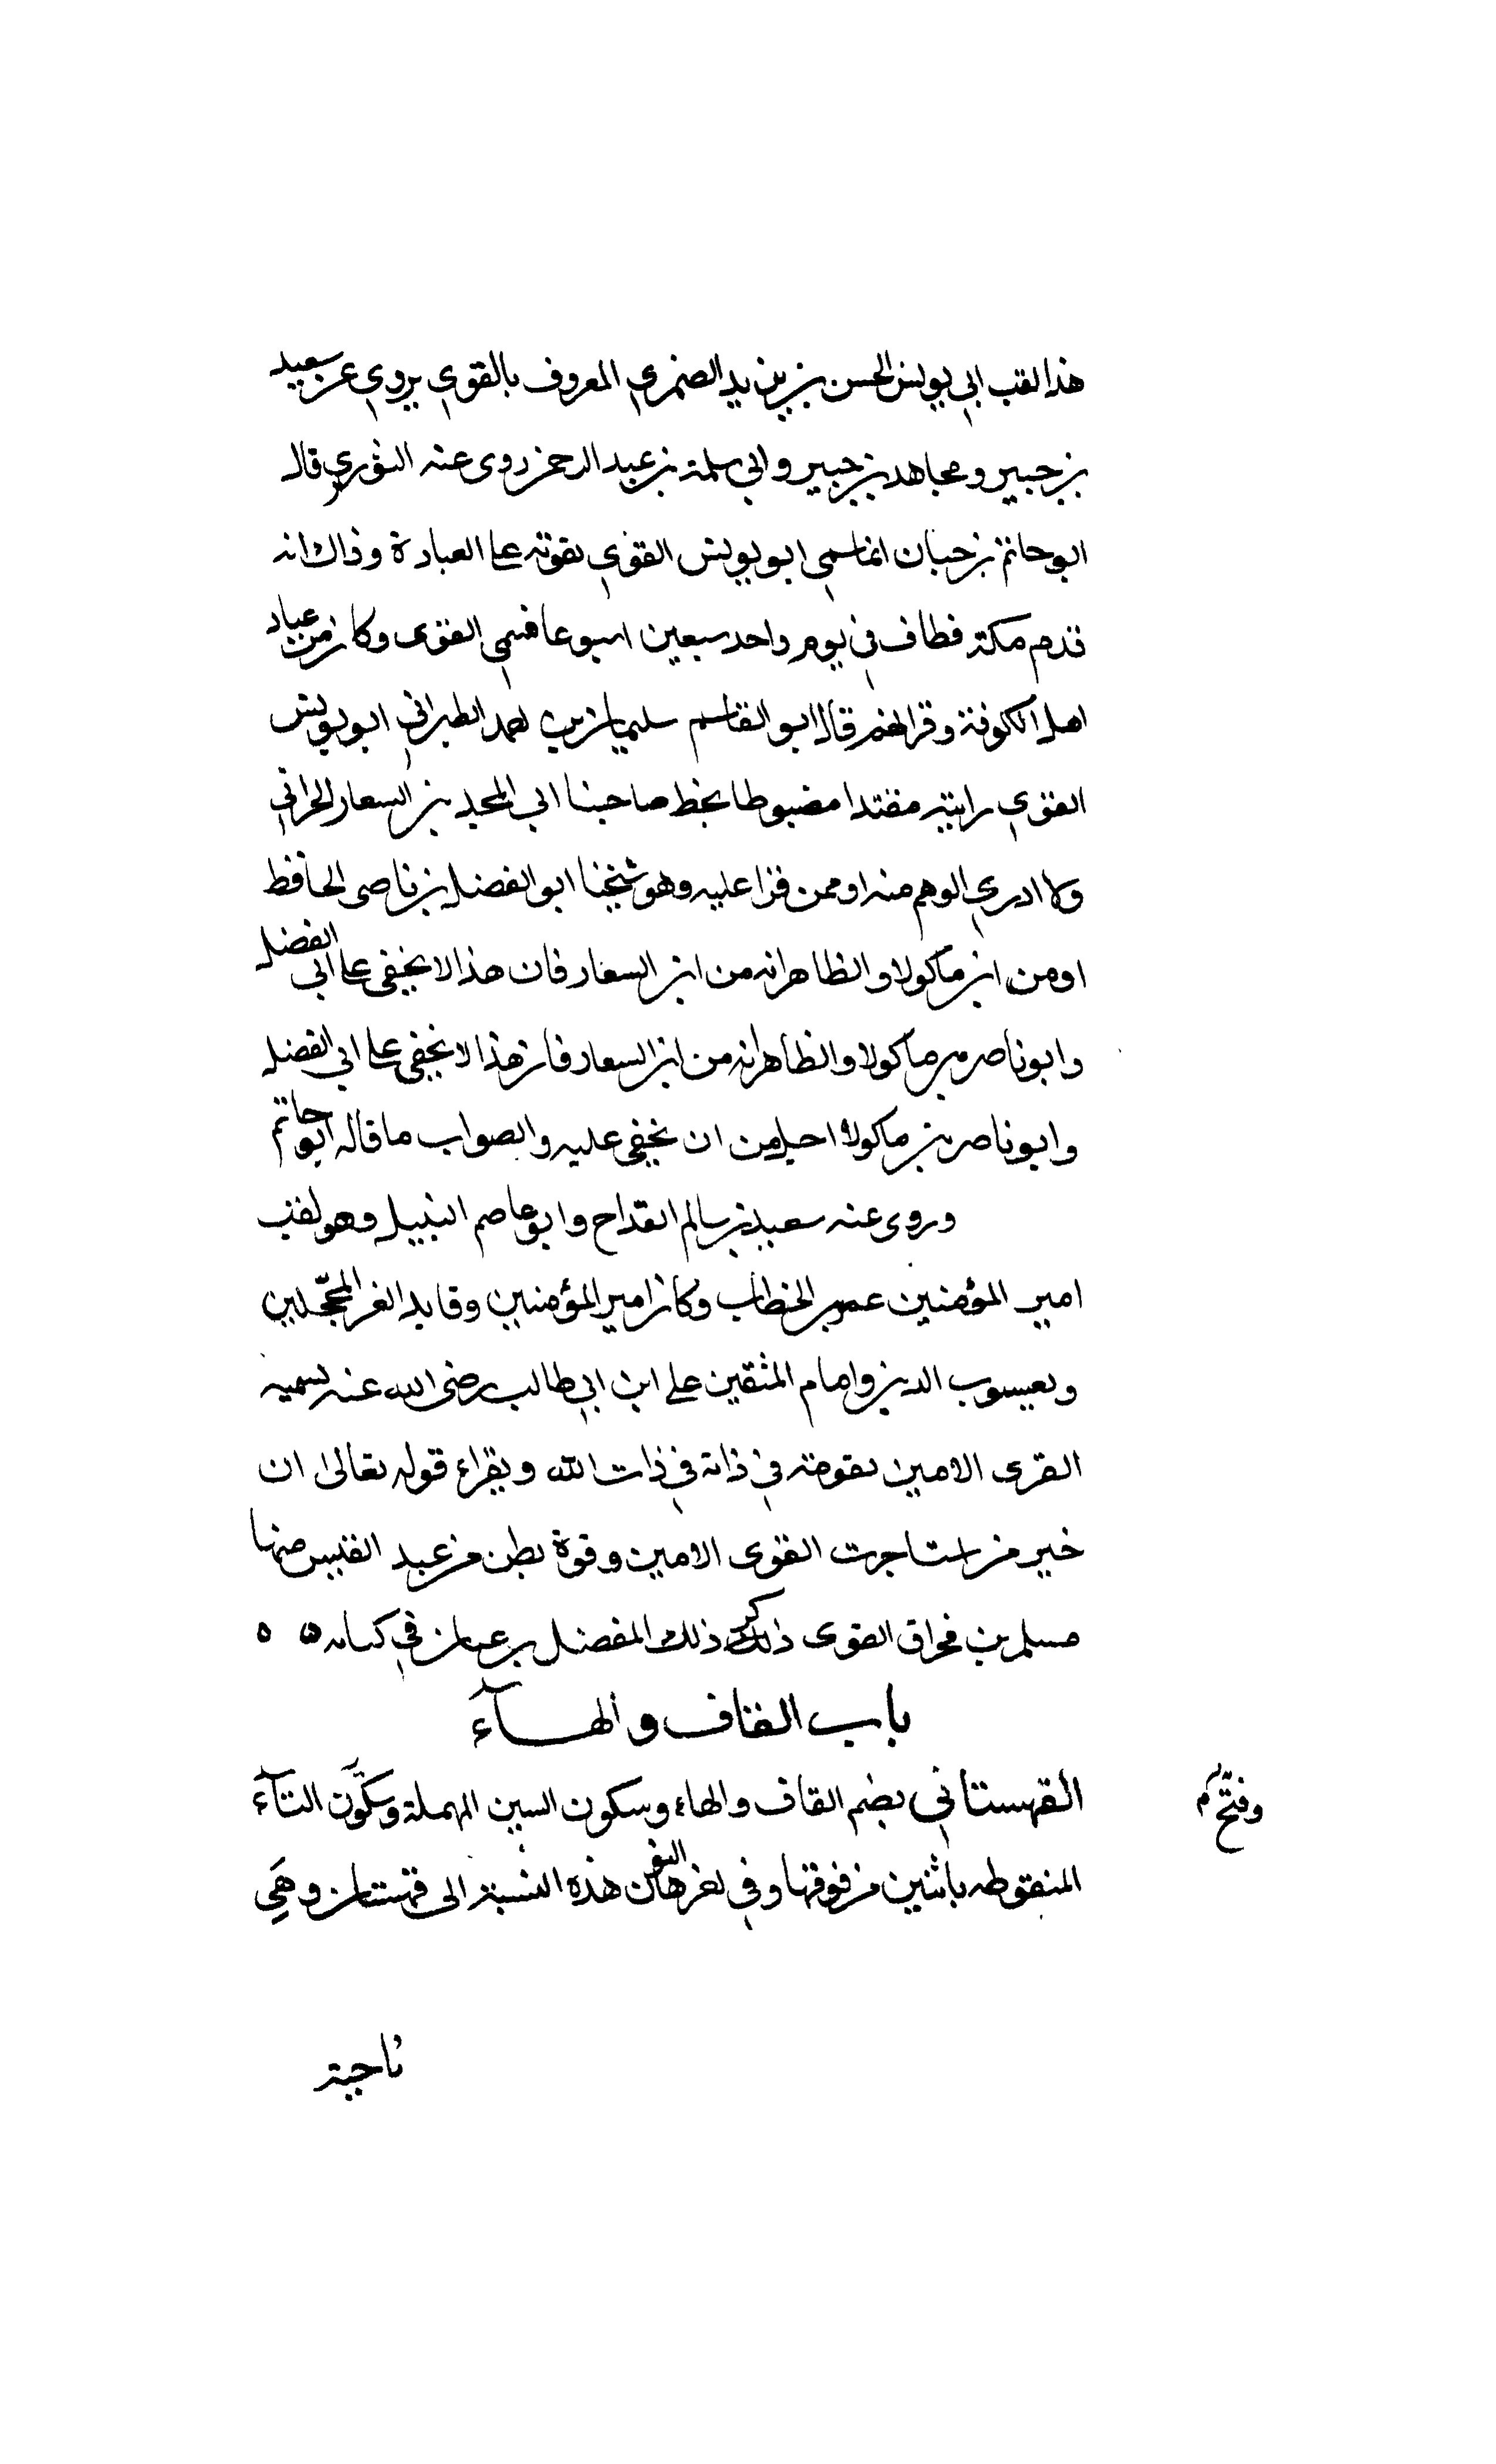 هذا لقب ابي يونس الحسن بن يزيد الضمري المعروف بالقوي يروي عن سعيد
بن جبير ومجاهد بن جبير وابي سلمة بن عبد الرحمن روى عنه الثوري قال
ابو حاتم بن حبان انما سمي ابو يونس القوي لقوته على العبادة وذاك انه
قدم مكة فطاف في يوم واحد سبعين اسبوعا فسمي القوى وكان من عباد
اهل الكوفة وقرائهم قال ابو القاسم سليمان بن احمد الطبراني ابو يونس
القوي رايته مقتدا مضبوطا بخط صاحبنا ابي المجد بن السعار الحراني
ولا ادري الوهم منه او ممن قرا عليه وهو شيخنا ابو الفضل بن ناصر الحافظ
او من ابن ماكولا والظاهر انه من ابن السعار فان هذا لا يخفى على ابي الفضل
وابو ناصر بن ماكولا والظاهر انه من ابن السعار فان هذا لا يخفى على ابي الفضل
وابو ناصر بن ماكولا اجل من ان يخفى عليه والصواب ما قاله ابو حاتم
وروى عنه سعيد بن سالم القداح وابو عاصم النبيل وهو لقب
امير المؤمنين عمر بن الخطاب وكان امير المؤمنين وقايد الغر المحجّلين
ويعسوب الدين وامام المتقين علي ابن ابي طالب رضى الله عنه يسميه
القوى الامين لقوته في ذاته في ذات الله ويقراء قوله تعالى ان
خير من استاجرت القوى الامين وقوة بطن من عبد القيس منها
مسلم بن مخراق القوى ذكر ذلك المفضل بن غسان في كتابه ه ه
باب القاف والهآء
القهستاني بضم القاف والهاء وسكون السين المهملة وسكون التآء
وفتح م
المنقوطه باثنين من فوقها وفي اخرها النون هذه النسبة الى قهستان وهي
ناحية